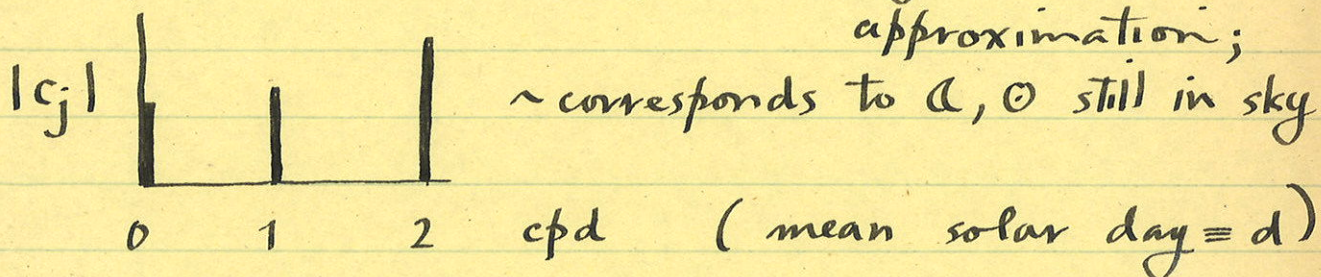 approximation;
|cj| ~ corresponds to ☾, ☉ still in sky
0 1 2 cpd (mean solar day ≡ d)